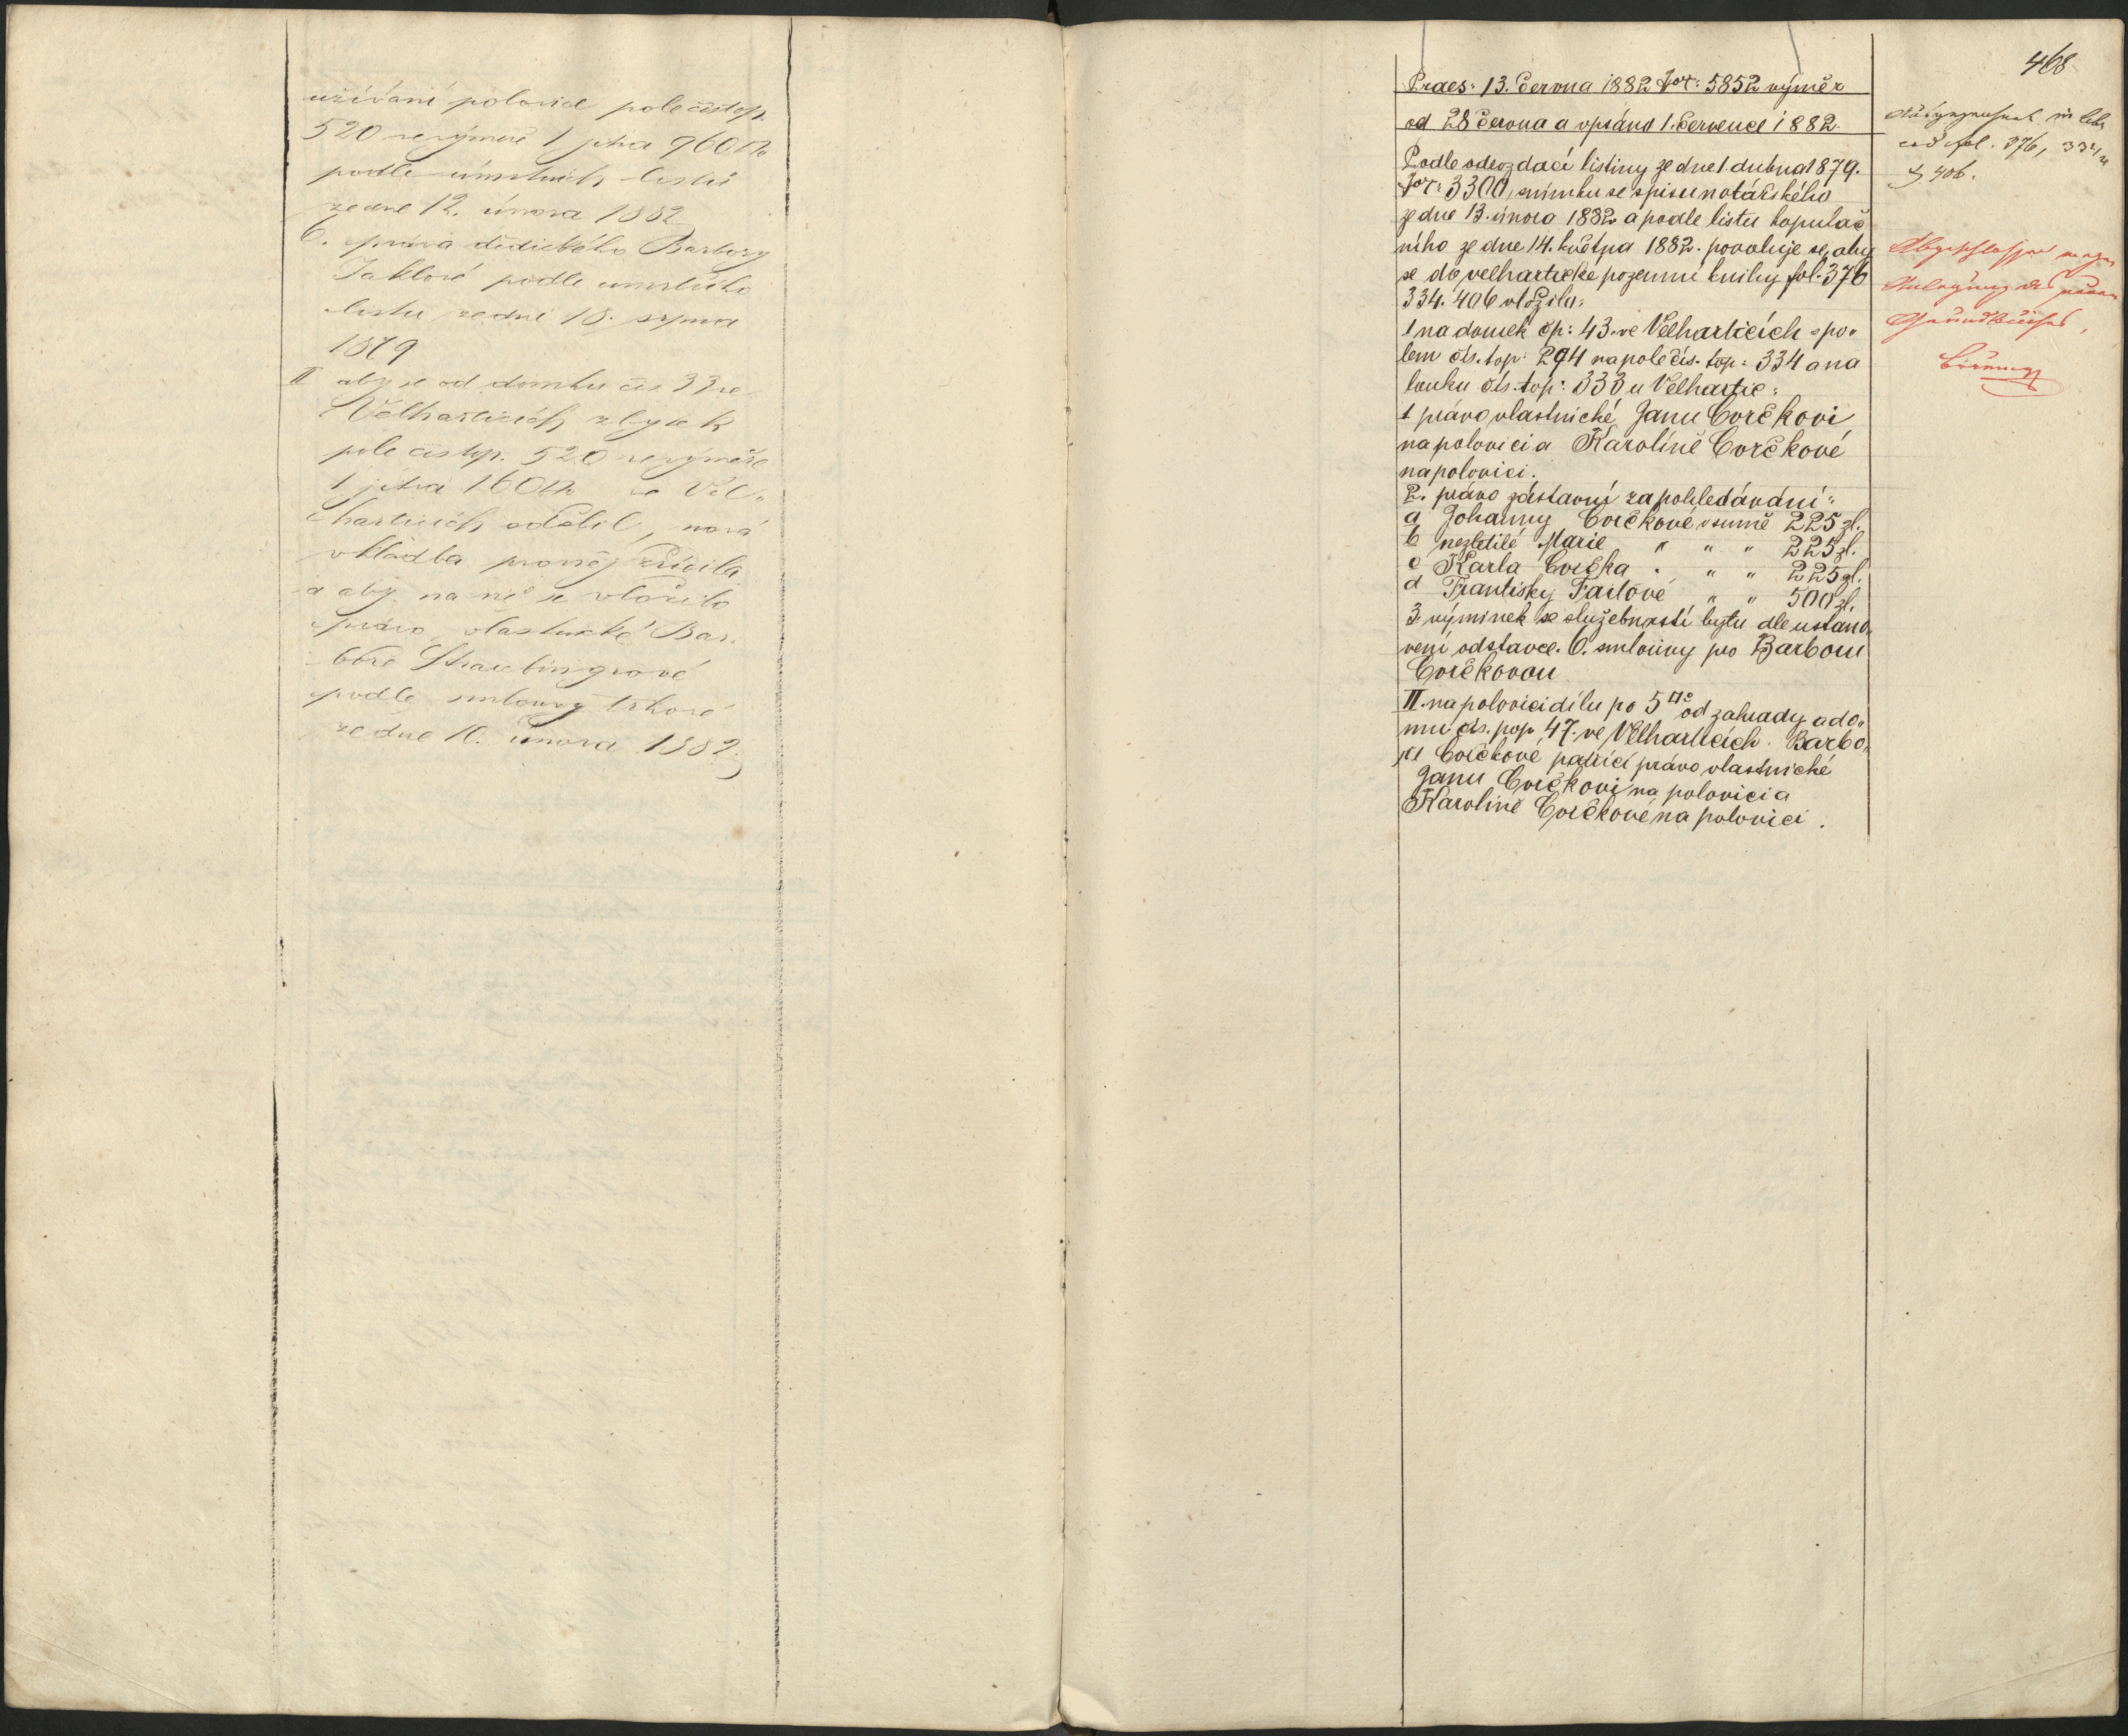 užívání polovice pole čís top.
520 ve výměře 1 jitra 960□°
podle úmrtních listů
ze dne 12. února 1882
6. práva dědického Barbory
Jaklové podle úmrtního
listu ze dne 18. srpna
1879
II aby se od domku čís 33 ve
Velharticích zbytek
pole čís top. 520 ve výměře
1 jitra 160□° ve Vel„
harticích oddělil, nová
vkladba pro něj zřídila
a aby na ně se vložilo
právo vlastnické Bar„
boře Straubingrové
podle smlouvy trhové
ze dne 10. února 1882.
468
Praes: 13. června 1882 Nor: 5852 výměr
od 28 června a vpsáno 1. července 1882.
Podle odevzdací listiny ze dne 1. dubna 1879.
Nor: 3300, snímku se spisu notářského
ze dne 13. února 1882 a podle listu kopulač
ního ze dne 14. května 1882. povoluje se, aby
se do velhartické pozemní knihy fol. 376
334. 406 vložilo:
I na domek čp: 43. ve Velharticích s po„
lem čís. top: 294 na pole čís. top: 334 a na
louku čís. top: 333 u Velhartic:
1 právo vlastnické Janu Cvrčkovi
na polovici a Karolíně Cvrčkové
na polovici.
2. právo zástavní za pohledávání:
a Johanny Cvrčkové v sumě 225 zl.
b nezletilé Marie " " " 225 zl.
c Karla Cvrčka " " " 225 zl.
d Františky Failové " " 500 zl.
3. výminek se služebností bytu dle ustano„
vení odstavce. 6. smlouvy pro Barboru
Cvrčkovou
II. na polovici dílu po 5 od zahrady a do„
mu čís. pop. 47. ve Velharticích. Barbo„
ře Cvrčkové patřící právo vlastnické
Janu Cvrčkovi na polovici a
Karolíně Cvrčkové na polovici.
in libr
cod fol. 376, 334,
& 406.
Abgeschlossen wegen
Anlegung des neuen
Grundbuches,